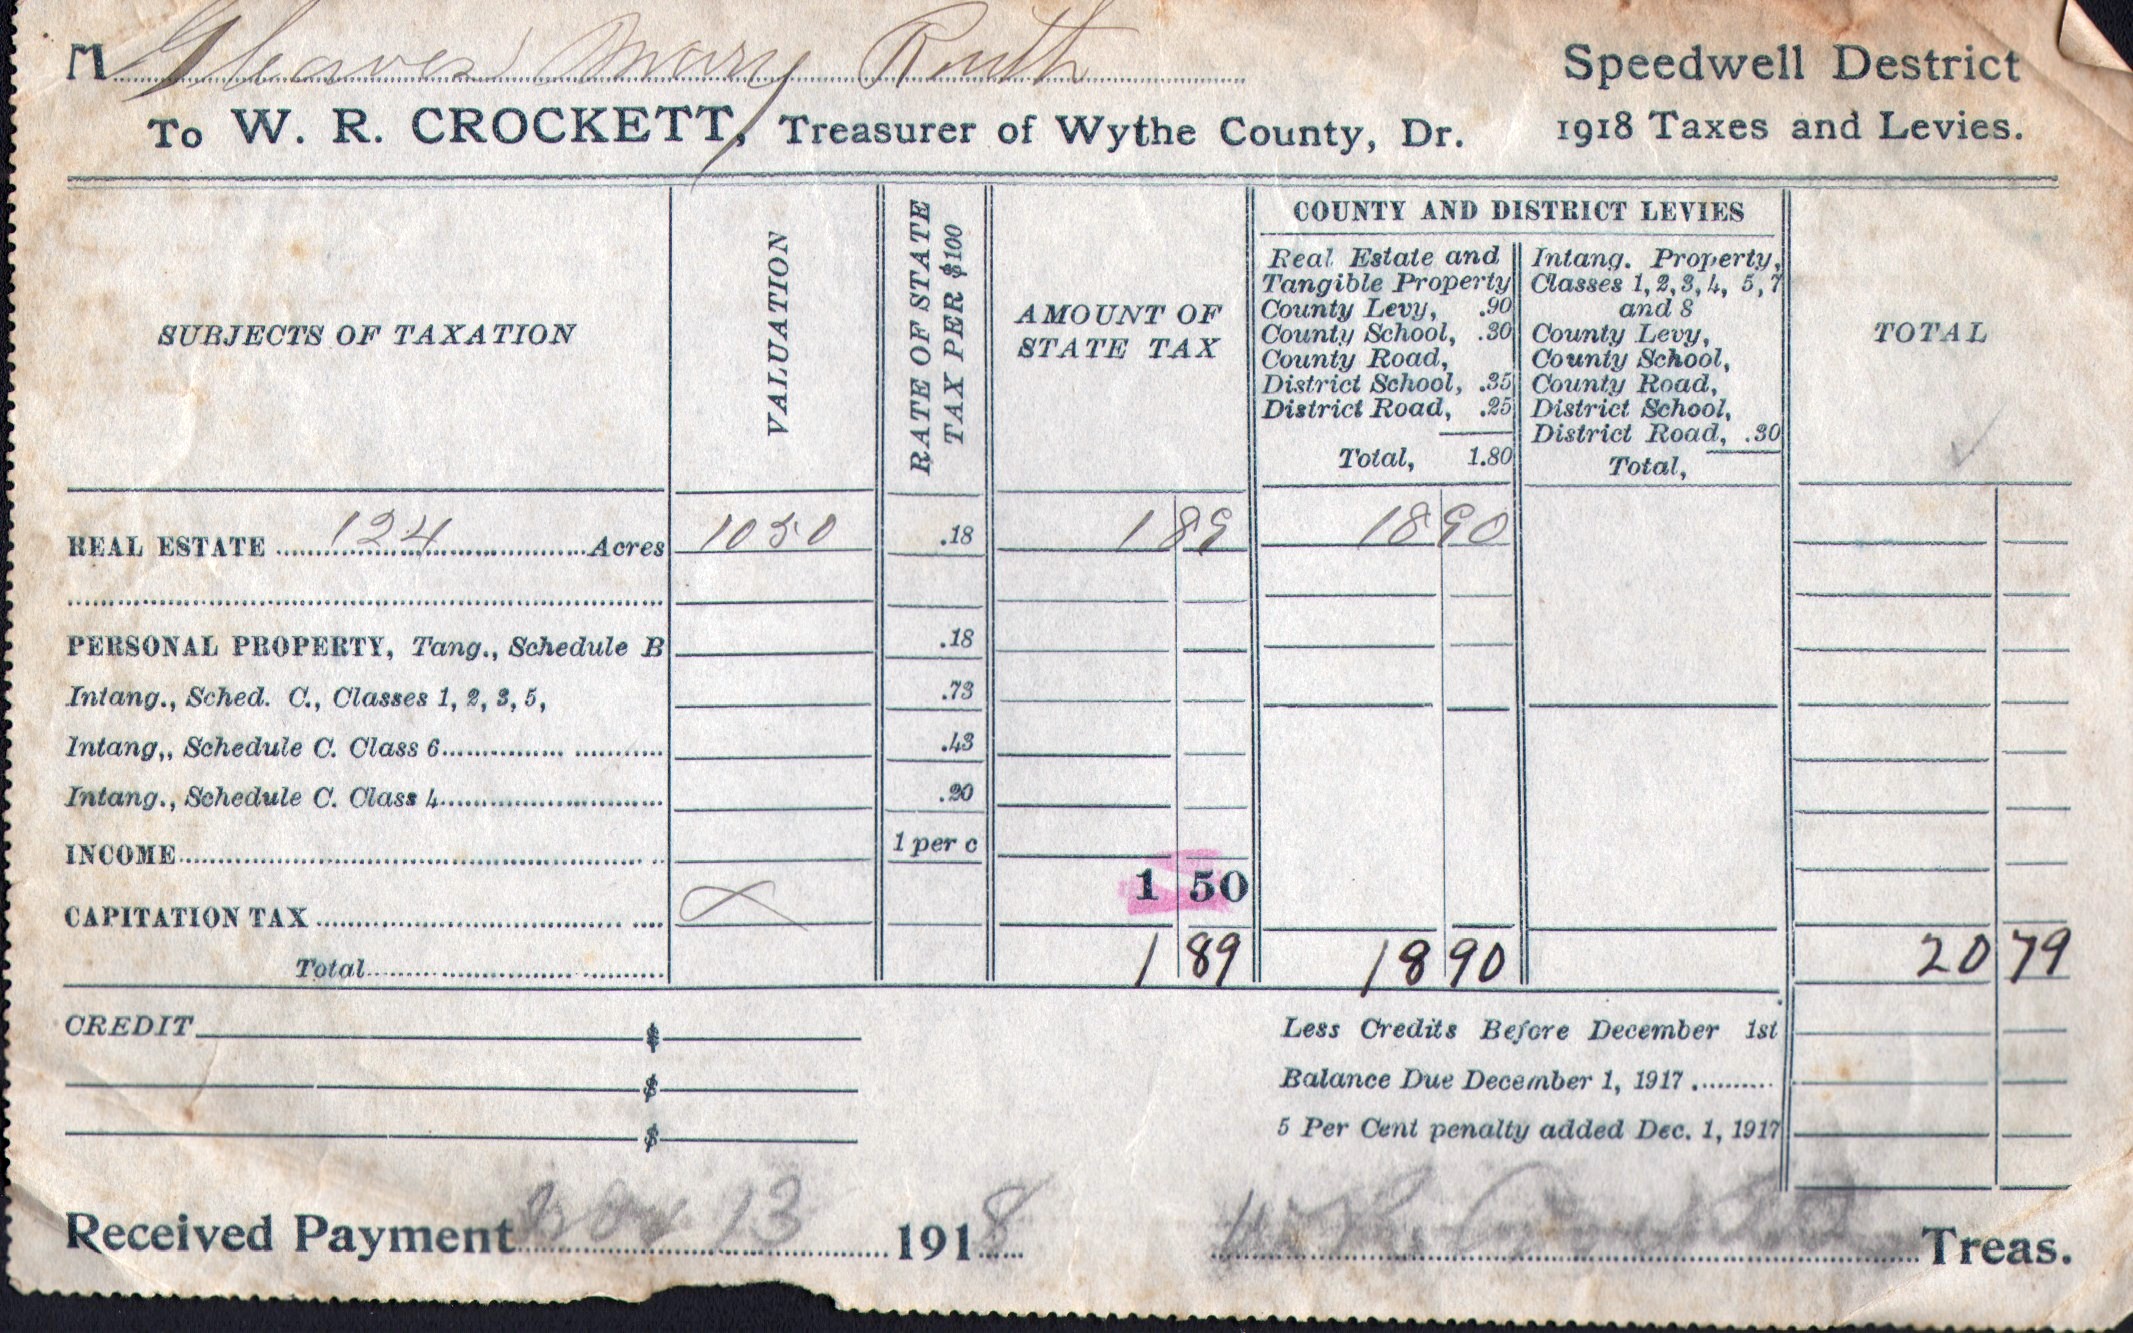 M Gleaves Mary Ruth
Speedwell Destrict
To W. R. CROCKETT, Treasurer of Wythe County, Dr.
1918 Taxes and Levies.
SUBJECTS OF TAXATION
VALUATION
RATE OF STATE
TAX PER $100
AMOUNT OF
STATE TAX
COUNTY AND DISTRICT LEVIES
Real Estate and
Tangible Property
County Levy, .90
County School, .30
County Road,
District School, .35
District Road, .25
Total, 1.80
Intang. Property,
Classes 1, 2, 3, 4, 5, 7
and 8
County Levy,
County School,
County Road,
District School,
District Road, .30
Total,
TOTAL
REAL ESTATE 124 Acres 1050 .18 1 89 18 90
PERSONAL PROPERTY, Tang., Schedule B .18
Intang., Sched. C., Classes 1, 2, 3, 5, .73
Intang,, Schedule C. Class 6 .43
Intang., Schedule C. Class 4 .20
INCOME 1 per c
CAPITATION TAX 1 50
Total 1 89 18 90 20 79
CREDIT $
$
$
Less Credits Before December 1st
Balance Due December 1, 1917
5 Per Cent penalty added Dec. 1, 1917
Received Payment Nov 13 1918 W. R. Crockett Treas.